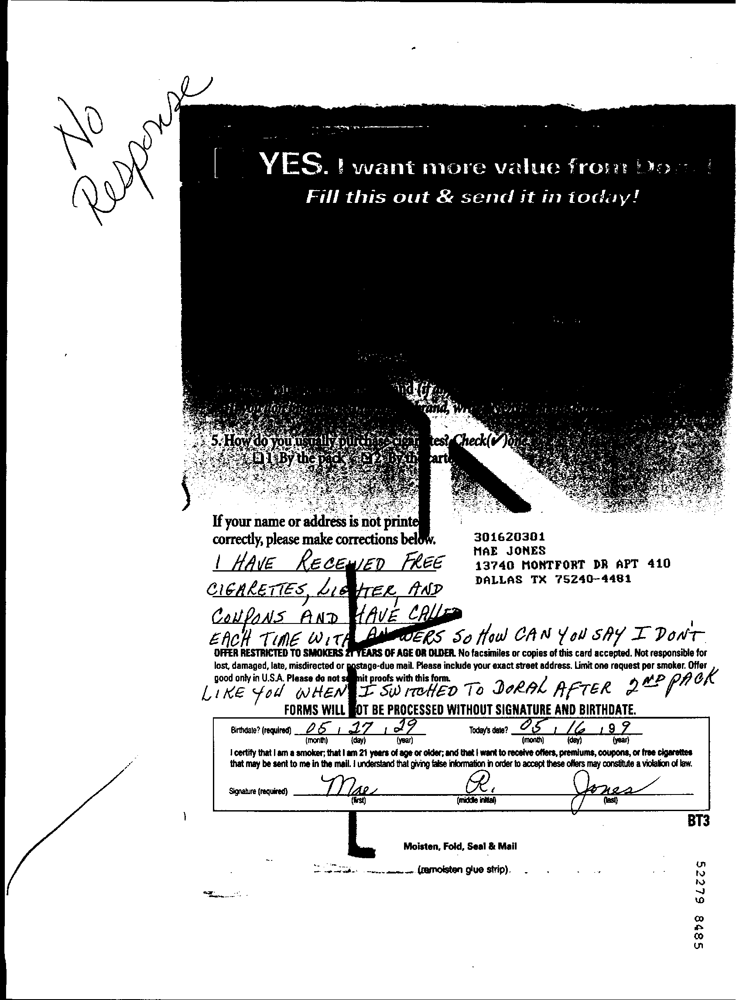 No
Response
YES. I want more value from
Fill this out & send it in today!
5. How do you usually purchase Check(✓)one
1. By the pack 2. By the
If your name or address is not printed
correctly, please make corrections below.
301620301
MAE JONES
13740 MONTFORT DR APT 410
DALLAS TX 75240-4481
I HAVE RECEIVED FREE
CIGARETTES, LIGHTER AND
COUPONS AND HAVE CALLED
EACH TIME WITH ANSWERS SO HOW CAN YOU SAY I DON'T
OFFER RESTRICTED TO SMOKERS 21 YEARS OF AGE OR OLDER. No facsimiles or copies of this card accepted. Not responsible for
lost, damaged, late, misdirected or postage-due mail. Please include your exact street address. Limit one request per smoker. Offer
good only in U.S.A. Please do not submit proofs with this form.
LIKE YOU WHEN I SWITCHED TO DORAL AFTER 2ND PACK
FORMS WILL NOT BE PROCESSED WITHOUT SIGNATURE AND BIRTHDATE.
Birthdate? (required) 05 27 29 Today's date? 05 16 99
(month) (day) (year) (month) (day) (year)
I certify that I am a smoker; that I am 21 years of age or older; and that I want to receive offers, premiums, coupons, or free cigarettes
that may be sent to me in the mail. I understand that giving false information in order to accept these offers may constitute a violation of law.
Signature (required) Mae R. Jones
(first) (middle initial) (last)
BT3
Moisten, Fold, Seal & Mail
(remoisten glue strip)
52279 8485